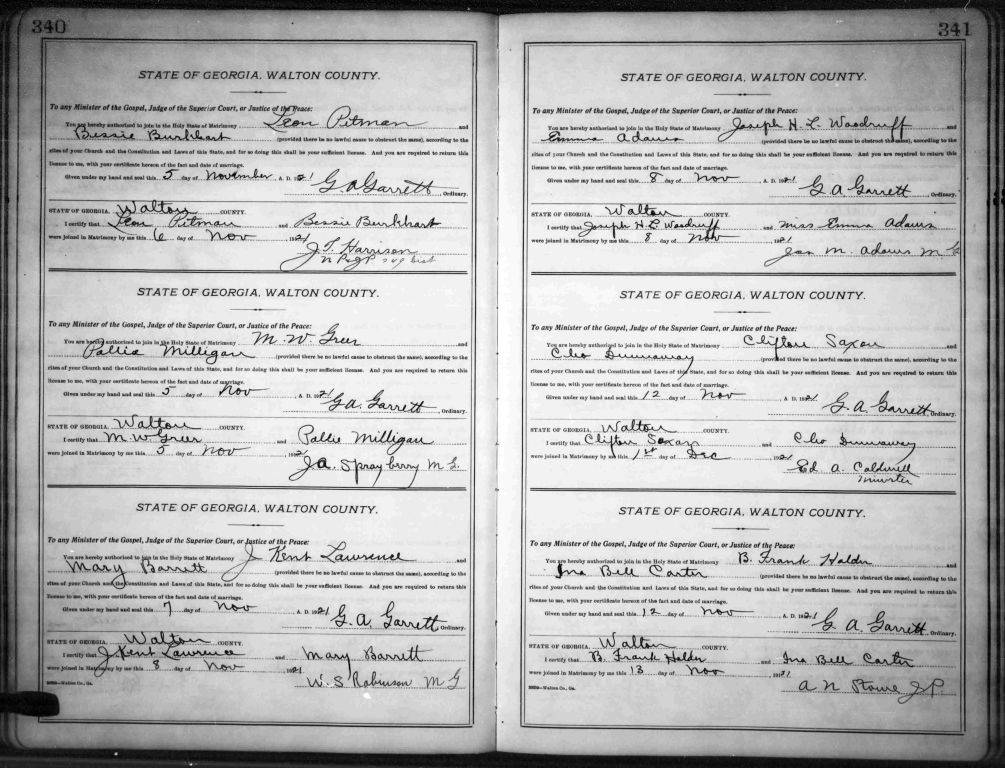 340
STATE OF GEORGIA, WALTON COUNTY.
To any Minister of the Gospel, Judge of the Superior Court, or Justice of the Peace:
You are hereby authorized to join in the Holy State of Matrimony Leon Pitman and
Bessie Burkhart (provided there be no lawful cause to obstruct the same), according to the
rites of your Church and the Constitution and Laws of this State, and for so doing this shall be your sufficient license. And you are required to return this
license to me, with your certificate hereon of the fact and date of marriage.
Given under my hand and seal this 5 day of November, A. D. 1921 G A Garrett Ordinary.
STATE OF GEORGIA, Walton COUNTY.
I certify that Leon Pitman and Bessie Burkhart
were joined in Matrimony by me this 6 day of Nov 1921
J. T. Harrison
STATE OF GEORGIA, WALTON COUNTY.
To any Minister of the Gospel, Judge of the Superior Court, or Justice of the Peace:
You are hereby authorized to join in the Holy State of Matrimony M. W. Greer and
Pallie Milligan (provided there be no lawful cause to obstruct the same), according to the
rites of your Church and the Constitution and Laws of this State, and for so doing this shall be your sufficient license. And you are required to return this
license to me, with your certificate hereon of the fact and date of marriage.
Given under my hand and seal this 5 day of Nov, A. D. 1921 G A. Garrett Ordinary.
STATE OF GEORGIA, Walton COUNTY.
I certify that M. W Greer and Pallie Milligan
were joined in Matrimony by me this 5 day of Nov 1921
J. A. Sprayberry M. G.
STATE OF GEORGIA, WALTON COUNTY.
To any Minister of the Gospel, Judge of the Superior Court, or Justice of the Peace:
You are hereby authorized to join in the Holy State of Matrimony J Kent Lawrence and
Mary Barrett (provided there be no lawful cause to obstruct the same), according to the
rites of your Church and the Constitution and Laws of this State, and for so doing this shall be your sufficient license. And you are required to return this
license to me, with your certificate hereon of the fact and date of marriage.
Given under my hand and seal this 7 day of Nov A. D. 1921 G. A. Garrett Ordinary.
STATE OF GEORGIA, Walton COUNTY.
I certify that J Kent Lawrence and Mary Barrett
were joined in Matrimony by me this 8 day of Nov 1921
W. S Robinson M G
Walton Co., Ga.
341
STATE OF GEORGIA, WALTON COUNTY.
To any Minister of the Gospel, Judge of the Superior Court, or Justice of the Peace:
You are hereby authorized to join in the Holy State of Matrimony Joseph H. L. Woodruff and
Emma Adams (provided there be no lawful cause to obstruct the same), according to the
rites of your Church and the Constitution and Laws of this State, and for so doing this shall be your sufficient license. And you are required to return this
license to me, with your certificate hereon of the fact and date of marriage.
Given under my hand and seal this 8 day of Nov, A. D. 1921 G. A. Garrett Ordinary.
STATE OF GEORGIA, Walton COUNTY.
I certify that Joseph H. L Woodruff and Miss Emma Adams
were joined in Matrimony by me this 8 day of Nov 1921
M. Adams M G
STATE OF GEORGIA, WALTON COUNTY.
To any Minister of the Gospel, Judge of the Superior Court, or Justice of the Peace:
You are hereby authorized to join in the Holy State of Matrimony Clifton Saxon and
Cleo Dunnaway (provided there be no lawful cause to obstruct the same), according to the
rites of your Church and the Constitution and Laws of this State, and for so doing this shall be your sufficient license. And you are required to return this
license to me, with your certificate hereon of the fact and date of marriage.
Given under my hand and seal this 12 day of Nov, A. D. 1921 G. A. Garrett Ordinary.
STATE OF GEORGIA, Walton COUNTY.
I certify that Clifton Saxon and Cleo Dunnaway
were joined in Matrimony by me this 1st day of Dec, 1921
Ed A. Caldwell
Minister
STATE OF GEORGIA, WALTON COUNTY.
To any Minister of the Gospel, Judge of the Superior Court, or Justice of the Peace:
You are hereby authorized to join in the Holy State of Matrimony B. Frank Holder and
Ina Bell Carter (provided there be no lawful cause to obstruct the same), according to the
rites of your Church and the Constitution and Laws of this State, and for so doing this shall be your sufficient license. And you are required to return this
license to me, with your certificate hereon of the fact and date of marriage.
Given under my hand and seal this 12 day of Nov A. D. 1921 G. A. Garrett Ordinary.
STATE OF GEORGIA, Walton COUNTY.
I certify that B. Frank Holder and Ina Bell Carter
were joined in Matrimony by me this 13 day of Nov, 1921
A N Stowe J. P.
Walton Co., Ga.